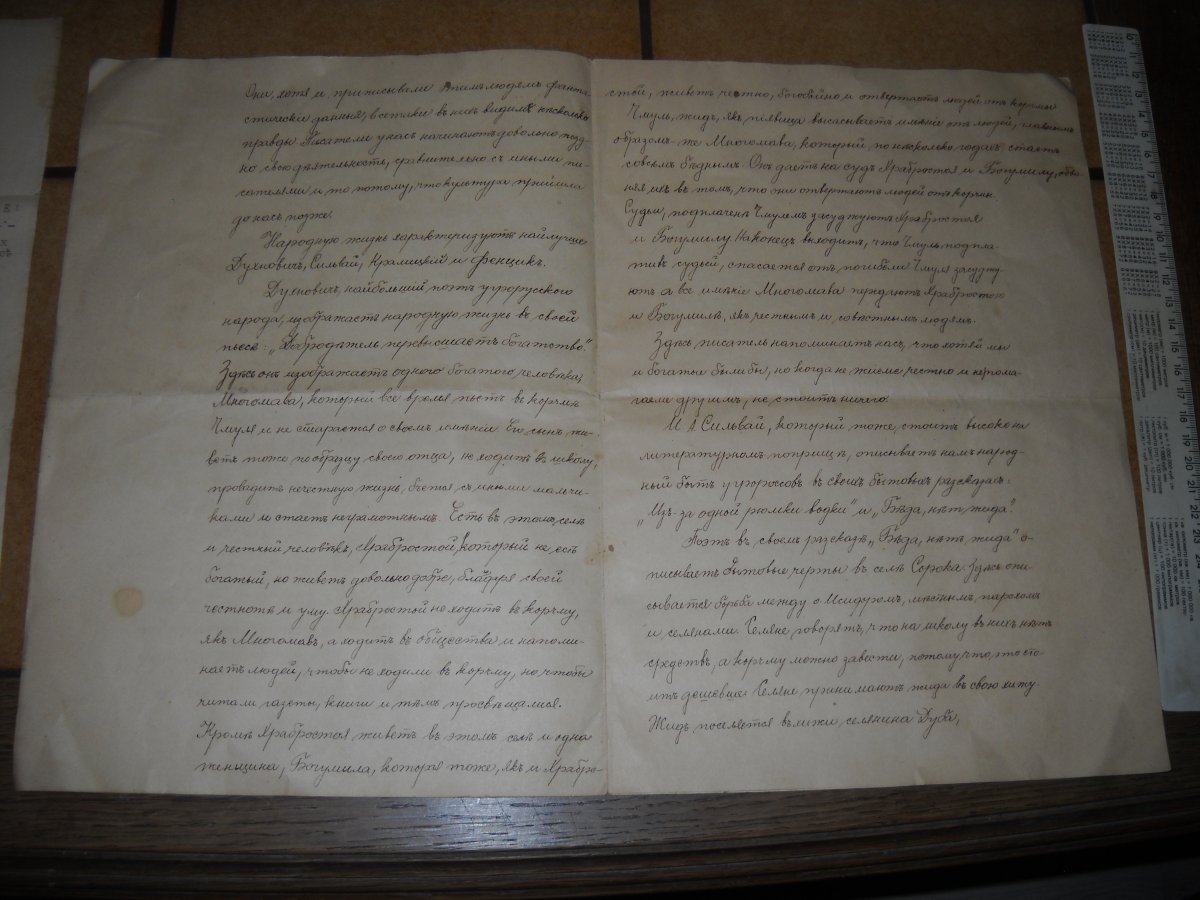 Они, хотя и приписывали этимъ людямъ фанта-
стическіе данныя, всетаки в нихъ видимъ нѣсколько
правды. Писатели у насъ начинаютъ довольно позд-
но свою дѣятельность, сравнительно съ иными пи-
сателями и то потому, что культура прийшла
до насъ позже.
Народную жизнь характеризуютъ найлучше
Духновичъ, Сильвай, Кралицкій и Фенцикъ.
Духновичъ, найбольшій поэтъ угрорусского
народа, изображаетъ народную жизнь въ своей
пьесѣ: „Добродѣтель перевышаетъ богатство".
Здѣсь онъ изображаетъ одного богатого человѣка,
Многомава, который все время пьетъ въ корчмѣ
Чмуля и не старается о своемъ имѣніи. Его сынъ жи-
ветъ тоже по образцу своего отца, не ходитъ въ школу,
проводитъ нечестную жизнь, бьется съ иными мальчи-
ками и стаетъ неграмотнымъ. Есть въ этомъ селѣ
и честный человѣкъ, Храбростой, который не есть
богатый, но живетъ довольно добре, благодря своей
честнотѣ и уму. Храбростой не ходитъ въ корчму,
якъ Многомавъ, а ходитъ въ общества и напоми-
наетъ людей, чтобы не ходили въ корчму, но чтобы
читали газеты, книги и тѣмъ просвѣщались.
Кромѣ Храбростоя живетъ въ этомъ селѣ и одна
женщина, Богумила, которая тоже, якъ и Храбро-
стой, живетъ честно, богобойно и отвертаетъ людей отъ корчмы
Чмуль, жидъ, якъ піявица высасываетъ имѣніе отъ людей, главнымъ
образомъ-же Многомава, который по нѣсколько годахъ стаетъ
совсѣмъ бѣднымъ. Онъ даетъ на судъ Храбростоя и Богумилу, обви-
няя ихъ въ томъ, что они отвертаютъ людей отъ корчмы.
Судьи, подплачены Чмулемъ засуджуютъ Храбростоя
и Богумилу. Наконецъ выходитъ, что Чмуль подпла-
тивъ судьей, спасается отъ погибели. Чмуля засуджу-
ютъ а все имѣніе Многомава передаютъ Храбростою
и Богумилѣ, якъ честнымъ и совѣстнымъ людямъ.
Здѣсь писатель напоминаетъ насъ, что хотяй мы
и богатые были бы, но когда не жиеме, честно и не пома-
гаеме другимъ, не стоитъ ничего.
И. А Сильвай, который тоже, стоитъ высоко на
литературномъ поприщѣ, описываетъ намъ народ-
ный бытъ угророссовъ въ своихъ бытовыхъ разсказахъ:
„Изъ-за одной рюмки водки" и „Бѣда, нѣтъ жида".
Поэтъ въ своемъ разсказѣ „Бѣда, нѣтъ жида" о-
писываетъ бытовые черты въ селѣ Сорока. Здѣсь опи-
сывается борьба между о. Исидоромъ, мѣстнымъ парохомъ
и селянами. Селяне говорятъ, что на школу въ нихъ нѣтъ
средствъ, а корчму можно завести, потому что, это сто-
итъ дешевше. Селяне принимаютъ жида въ свою хижу.
Жидъ поселяется въ хижи селянина Дуба,